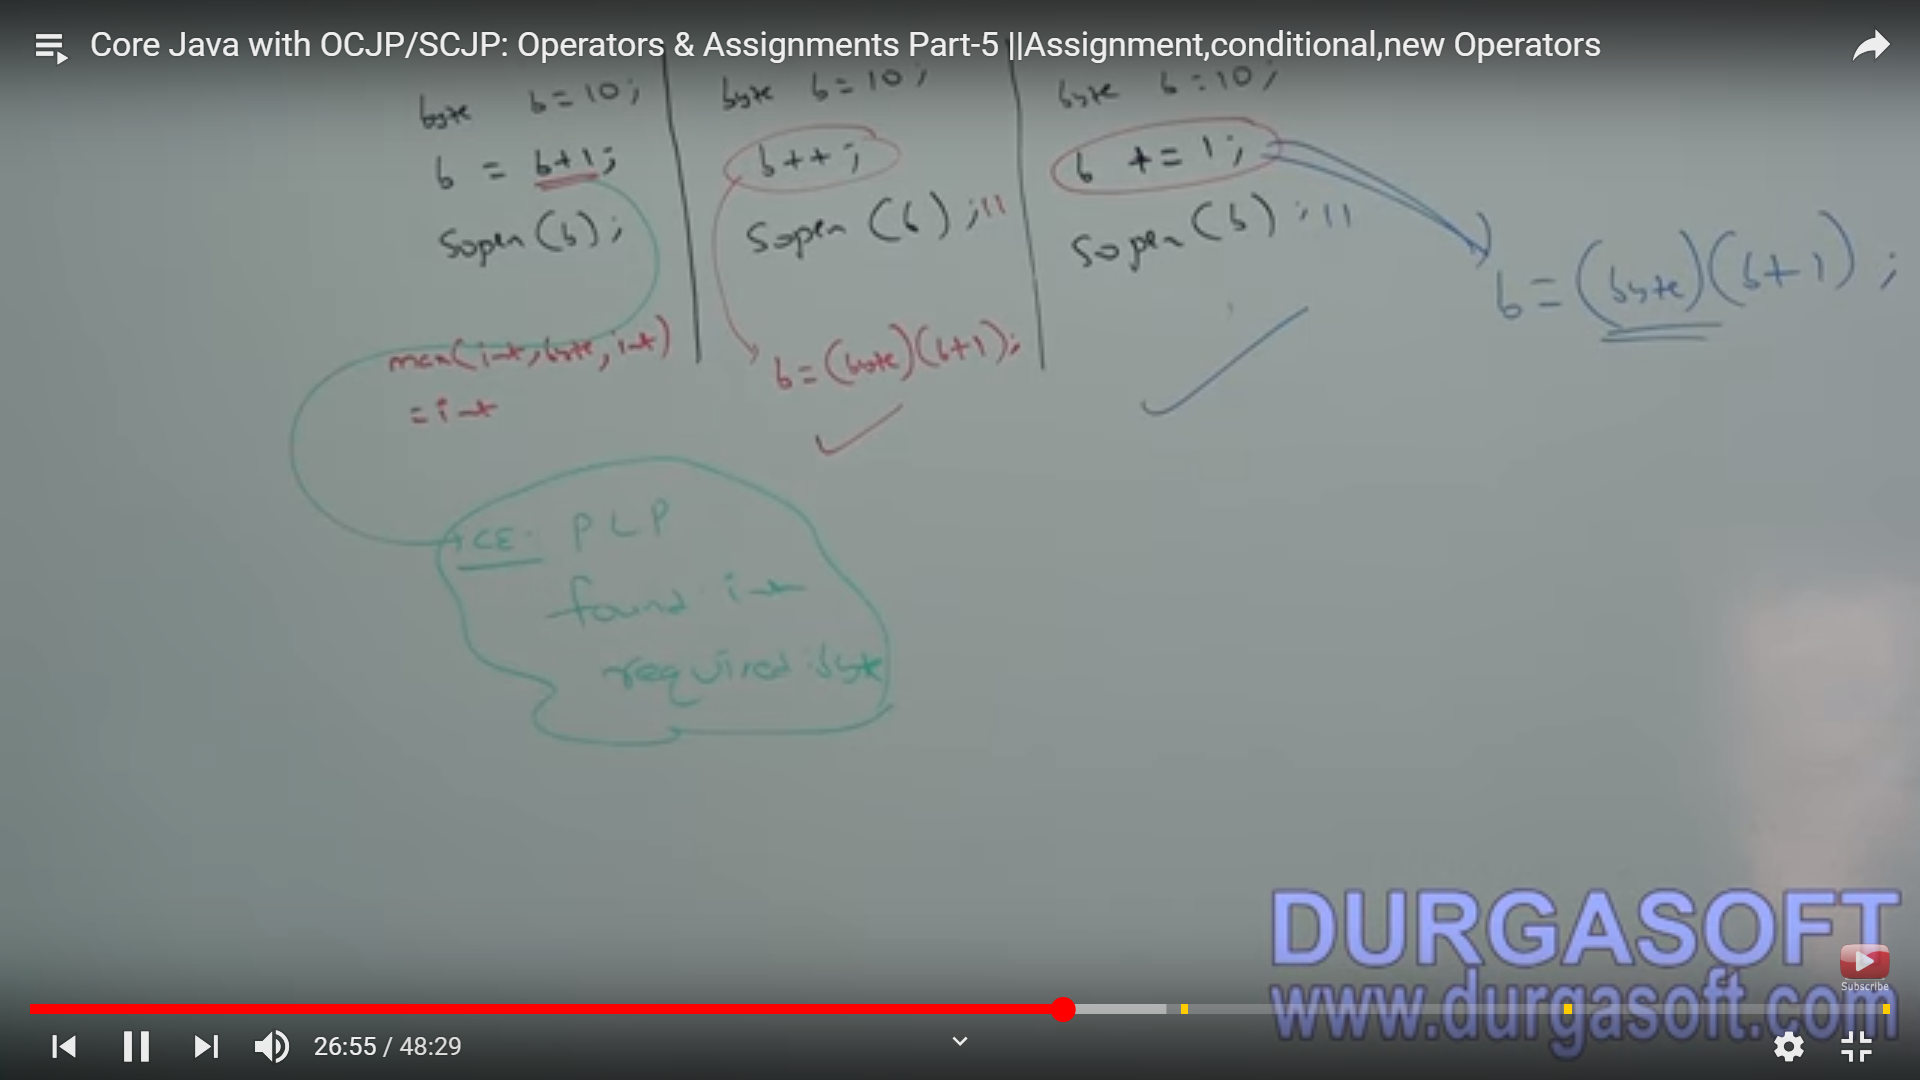 Core Java with OCJP/SCJP: Operators & Assignments Part-5 ||Assignment,conditional,new Operators
byte b=10;
b = b+1;
Sopen(b);
max(int,byte,int)
=int
CE: PLP
found: int
required: byte
byte b=10;
b++;
Sopen(b);//
b=(byte)(b+1);
byte b=10;
b += 1;
Sopen(b);//
b=(byte)(b+1);
DURGASOFT
www.durgasoft.com
Subscribe
26:55 / 48:29